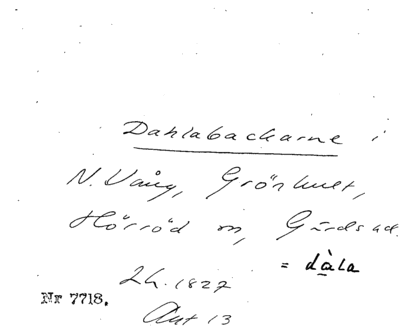 Dahlabackarne i
N. Vång, Grönhult,
Hörröd m, Gärds hd.
= dàla
Lh. 1827
Nr 7718.
Akt 13